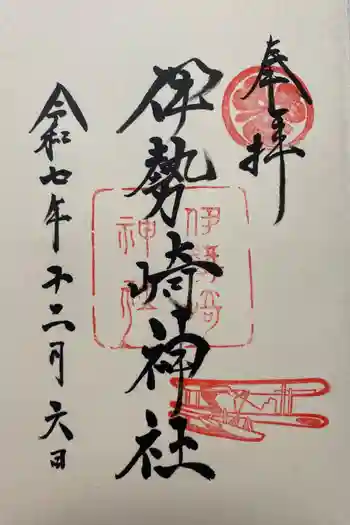 奉拝
伊勢崎神社
伊勢崎
神社
令和七年十二月六日